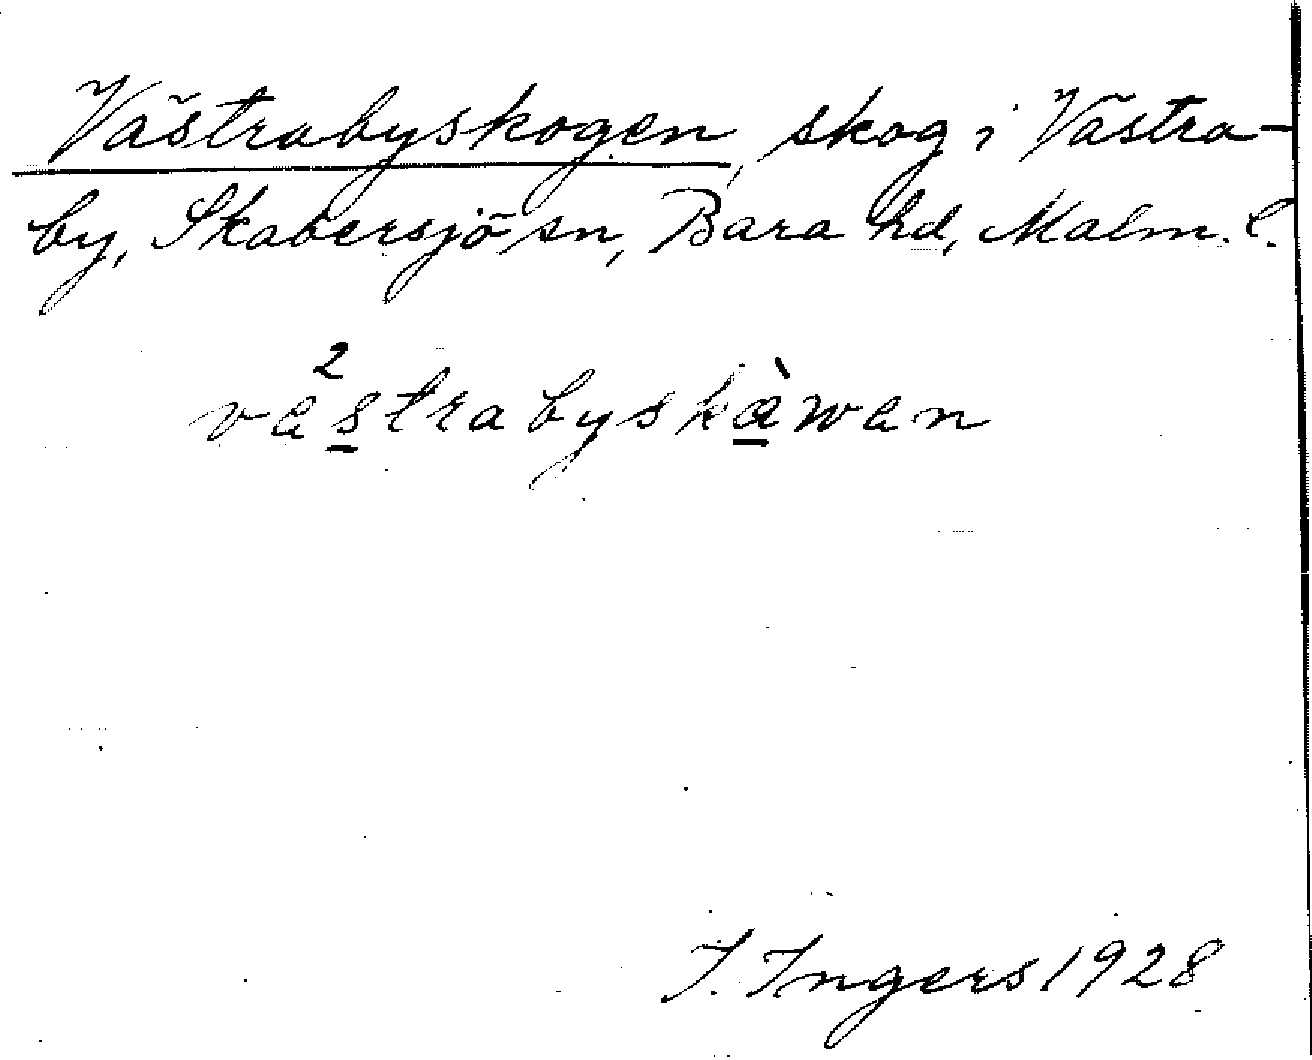 Västrabyskogen, skog i Västra-
by, Skabersjö sn, Bara hd, Malm. l.
va²s̲trabyskæ̲̀wan
I. Ingers 1928